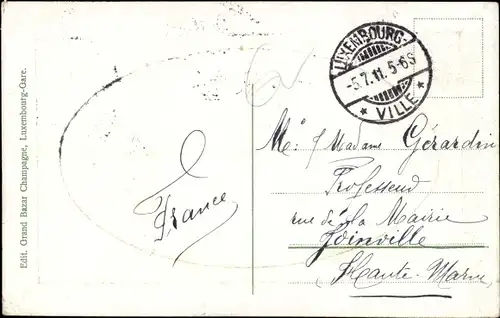 Edit. Grand Bazar Champagne, Luxembourg-Gare.
LUXEMBOURG-
-5.7.11. 5-6S
* VILLE *
France
Mr. / Madame Gérardin
Professeur
rue de la Mairie
Joinville
Haute-Marne